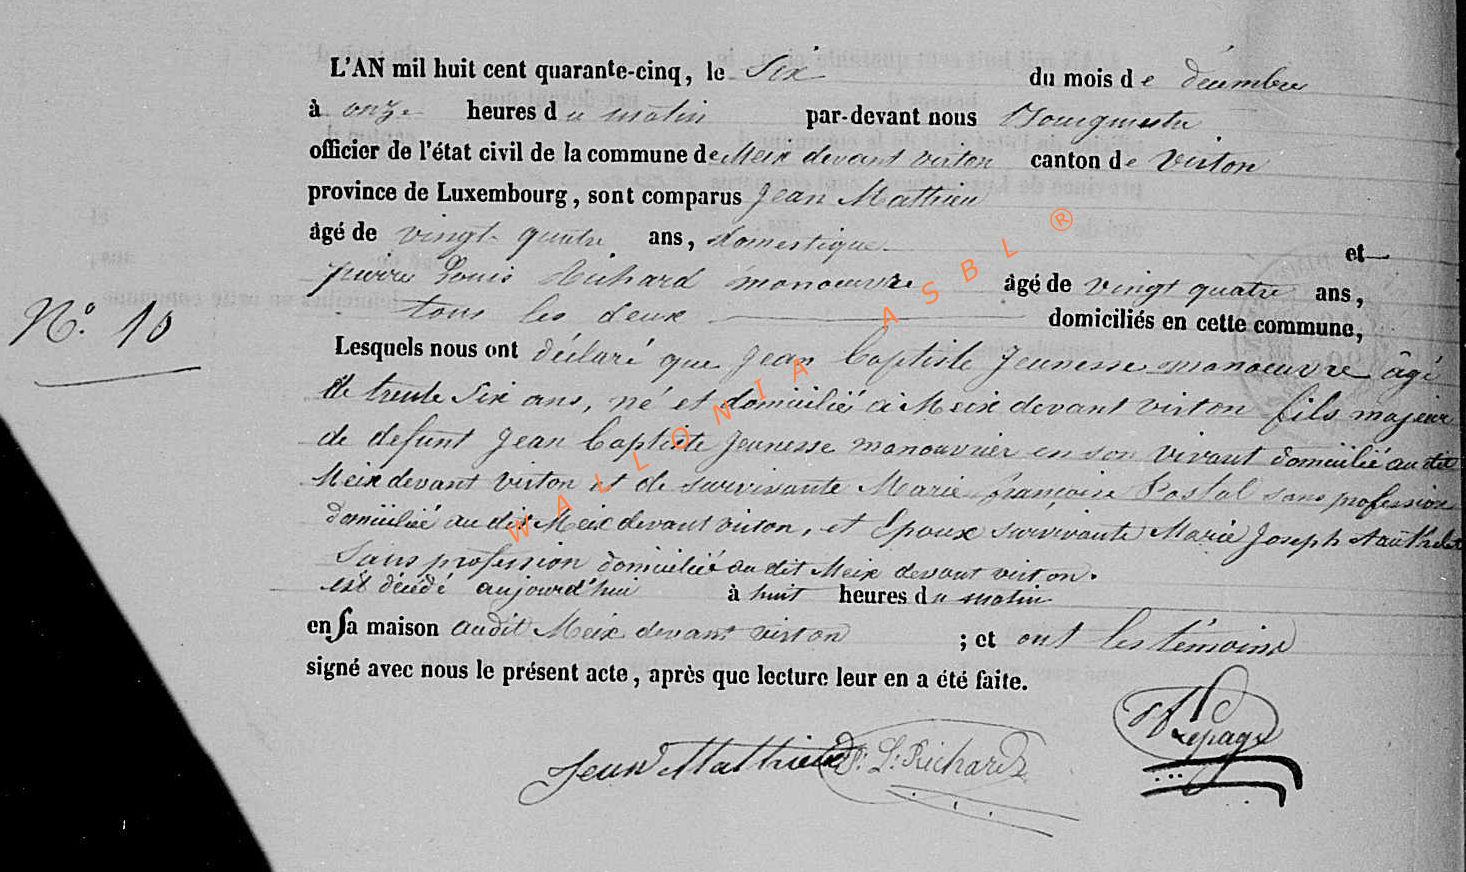 L'AN mil huit cent quarante-cinq, le Six du mois de décembre
à onze heures du matin par-devant nous Bourgmestre
officier de l'état civil de la commune de Meix devant virton canton de Virton
province de Luxembourg, sont comparus Jean Mathieu
âgé de vingt quatre ans, domestique et
pierre Louis Richard manoeuvre âgé de vingt quatre ans,
tous les deux domiciliés en cette commune,
N.° 10
Lesquels nous ont déclaré que Jean baptiste Jeunesse manoeuvre âgé
de trente Six ans, né et domicilié à Meix devant virton fils majeur
de defunt Jean baptiste Jeunesse manouvrier en son vivant domicilié au dit
Meix devant virton et de survivante Marie françoise Postal sans profession
domicilié au dit Meix devant virton, et Epoux survivante Marie Joseph
Sans profession domicilié au dit Meix devant virton.
est décédé aujourd'hui à huit heures du matin
en sa maison audit Meix devant virton ; et ont les témoins
signé avec nous le présent acte, après que lecture leur en a été faite.
Jean Mathieu P: L: Richard Lepage
WALLONIA ASBL ®